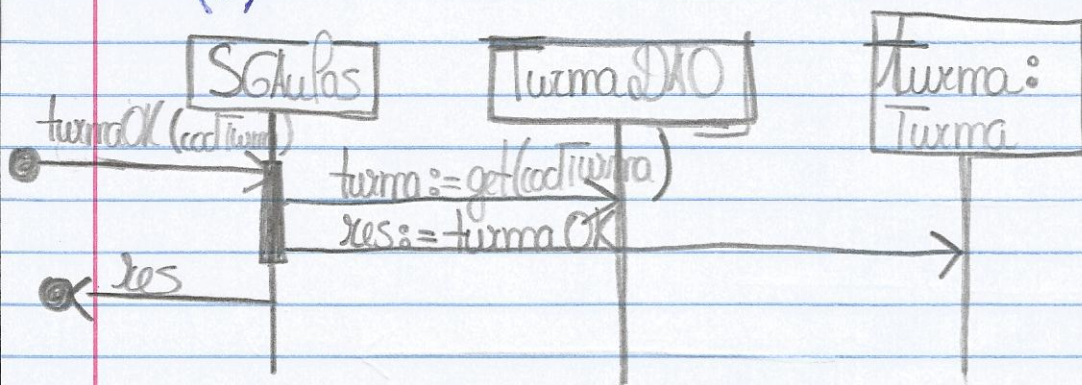 SGAulas
TurmaDAO
turma:
Turma
turmaOK(codTurma)
turma:=get(codTurma)
res:=turmaOK
res